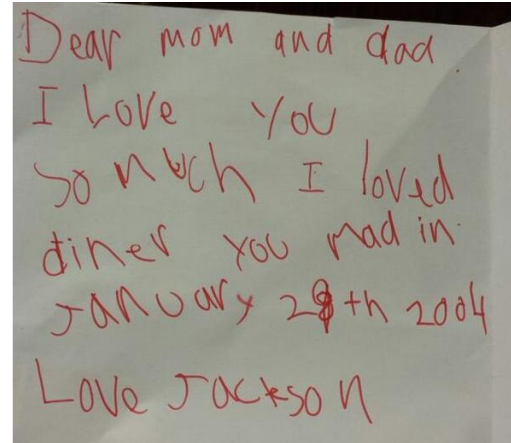 Dear mom and dad
I Love you
so much I loved
diner you mad in
January 28th 2004
Love Jackson